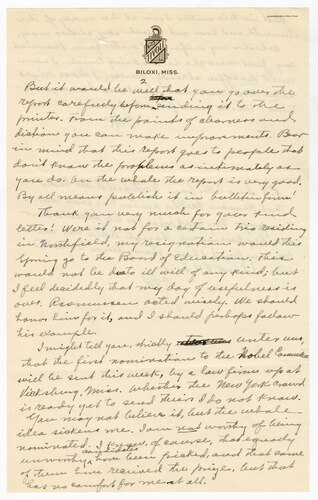 BILOXI, MISS.
2
But it would be well that you go over the
report carefully before sending it to the
printer. From the points of clearness and
diction you can make improvements. Bear
in mind that this report goes to people that
don't know the problems as intimately as
you do. On the whole the report is very good.
By all means publish it in bulletin form.
Thank you very much for your kind
letter! Were it not for a certain trio residing
in Northfield, my resignation would this
Spring go to the Board of Education. This
would not be due to ill will of any kind; but
I feel decidedly that my day of usefulness is
over. Rasmussen acted wisely. We should
honor him for it, and I should perhaps follow
his example.
I might tell you, strictly unter uns,
that the first nomination to the Nobel Committee
will be sent this week, by a law firm up at
Vicksburg, Miss. Whether the New York crowd
is ready yet to send theirs I do not know.
You may not believe it, but the whole
idea sickens me. I am not worthy of being
nominated. I know, of course, that equally
unworthy candidates have been picked, and that some
of them have received the prize, but that
has no comfort for me at all.